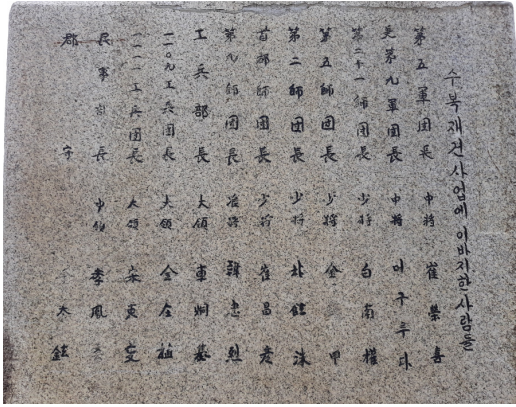 수복재건사업에 이바지한 사람들
第五軍団長 中將 崔榮喜
美第九軍団長 中將
第二十一師団長 少將 白南權
第五師団長 少將 金 甲
第二師団長 少將 鉉洙
首都師団長 少將 崔昌彦
第九師団長 准將 韓忠烈
工兵部長 大領 車炯
一一〇九工兵団長 大領 金
一一一一工兵団長 大領 宋
民事 長 中領 李鳳
郡守 太鉉